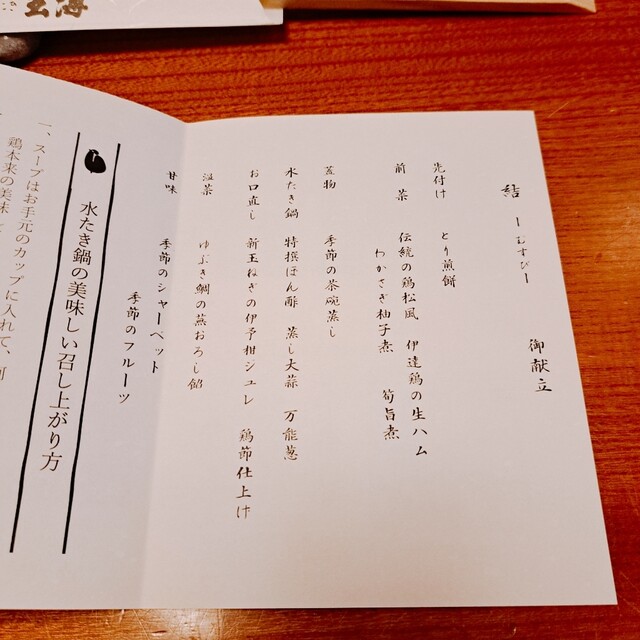 御献立
結 ーむすびー
先付け とり煎餅
前菜 伝統の鶏松風 伊達鶏の生ハム
わかさぎ柚子煮 筍旨煮
蓋物 季節の茶碗蒸し
水たき鍋 特撰ぽん酢 蒸し大蒜 万能葱
お口直し 新玉ねぎの伊予柑ジュレ 鶏節仕上げ
温菜 ゆぶき鯛の蕪おろし餡
甘味 季節のシャーベット
季節のフルーツ
水たき鍋の美味しい召し上がり方
一、スープはお手元のカップに入れて、
鶏本来の美味
玉海